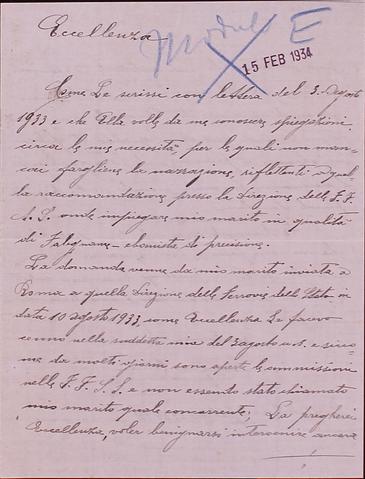 Eccellenza
Modul E
15 FEB 1934
Come Le scrissi con lettera del 3 agosto
1933 e che Ella volle da me conoscere spiegazioni
circa le mie necessità, per le quali non man-
cai fargliene la narrazione, riflettenti a quel-
la raccomandazione presso la Direzione delle F.F.
S.S. onde impiegare mio marito in qualità
di Falegname - ebanista di precisione.
La domanda venne da mio marito inviata a
Roma a quella Direzione delle Ferrovie dello Stato in
data 10 agosto 1933, come Eccellenza Le facevo
cenno nella suddetta mia del 3 agosto u.s. e sicco-
me da molti giorni sono aperte le ammissioni
nelle F.F. S.S. e non essendo stato chiamato
mio marito quale concorrente; La pregherei
Eccellenza, voler benignarsi intervenire ancora